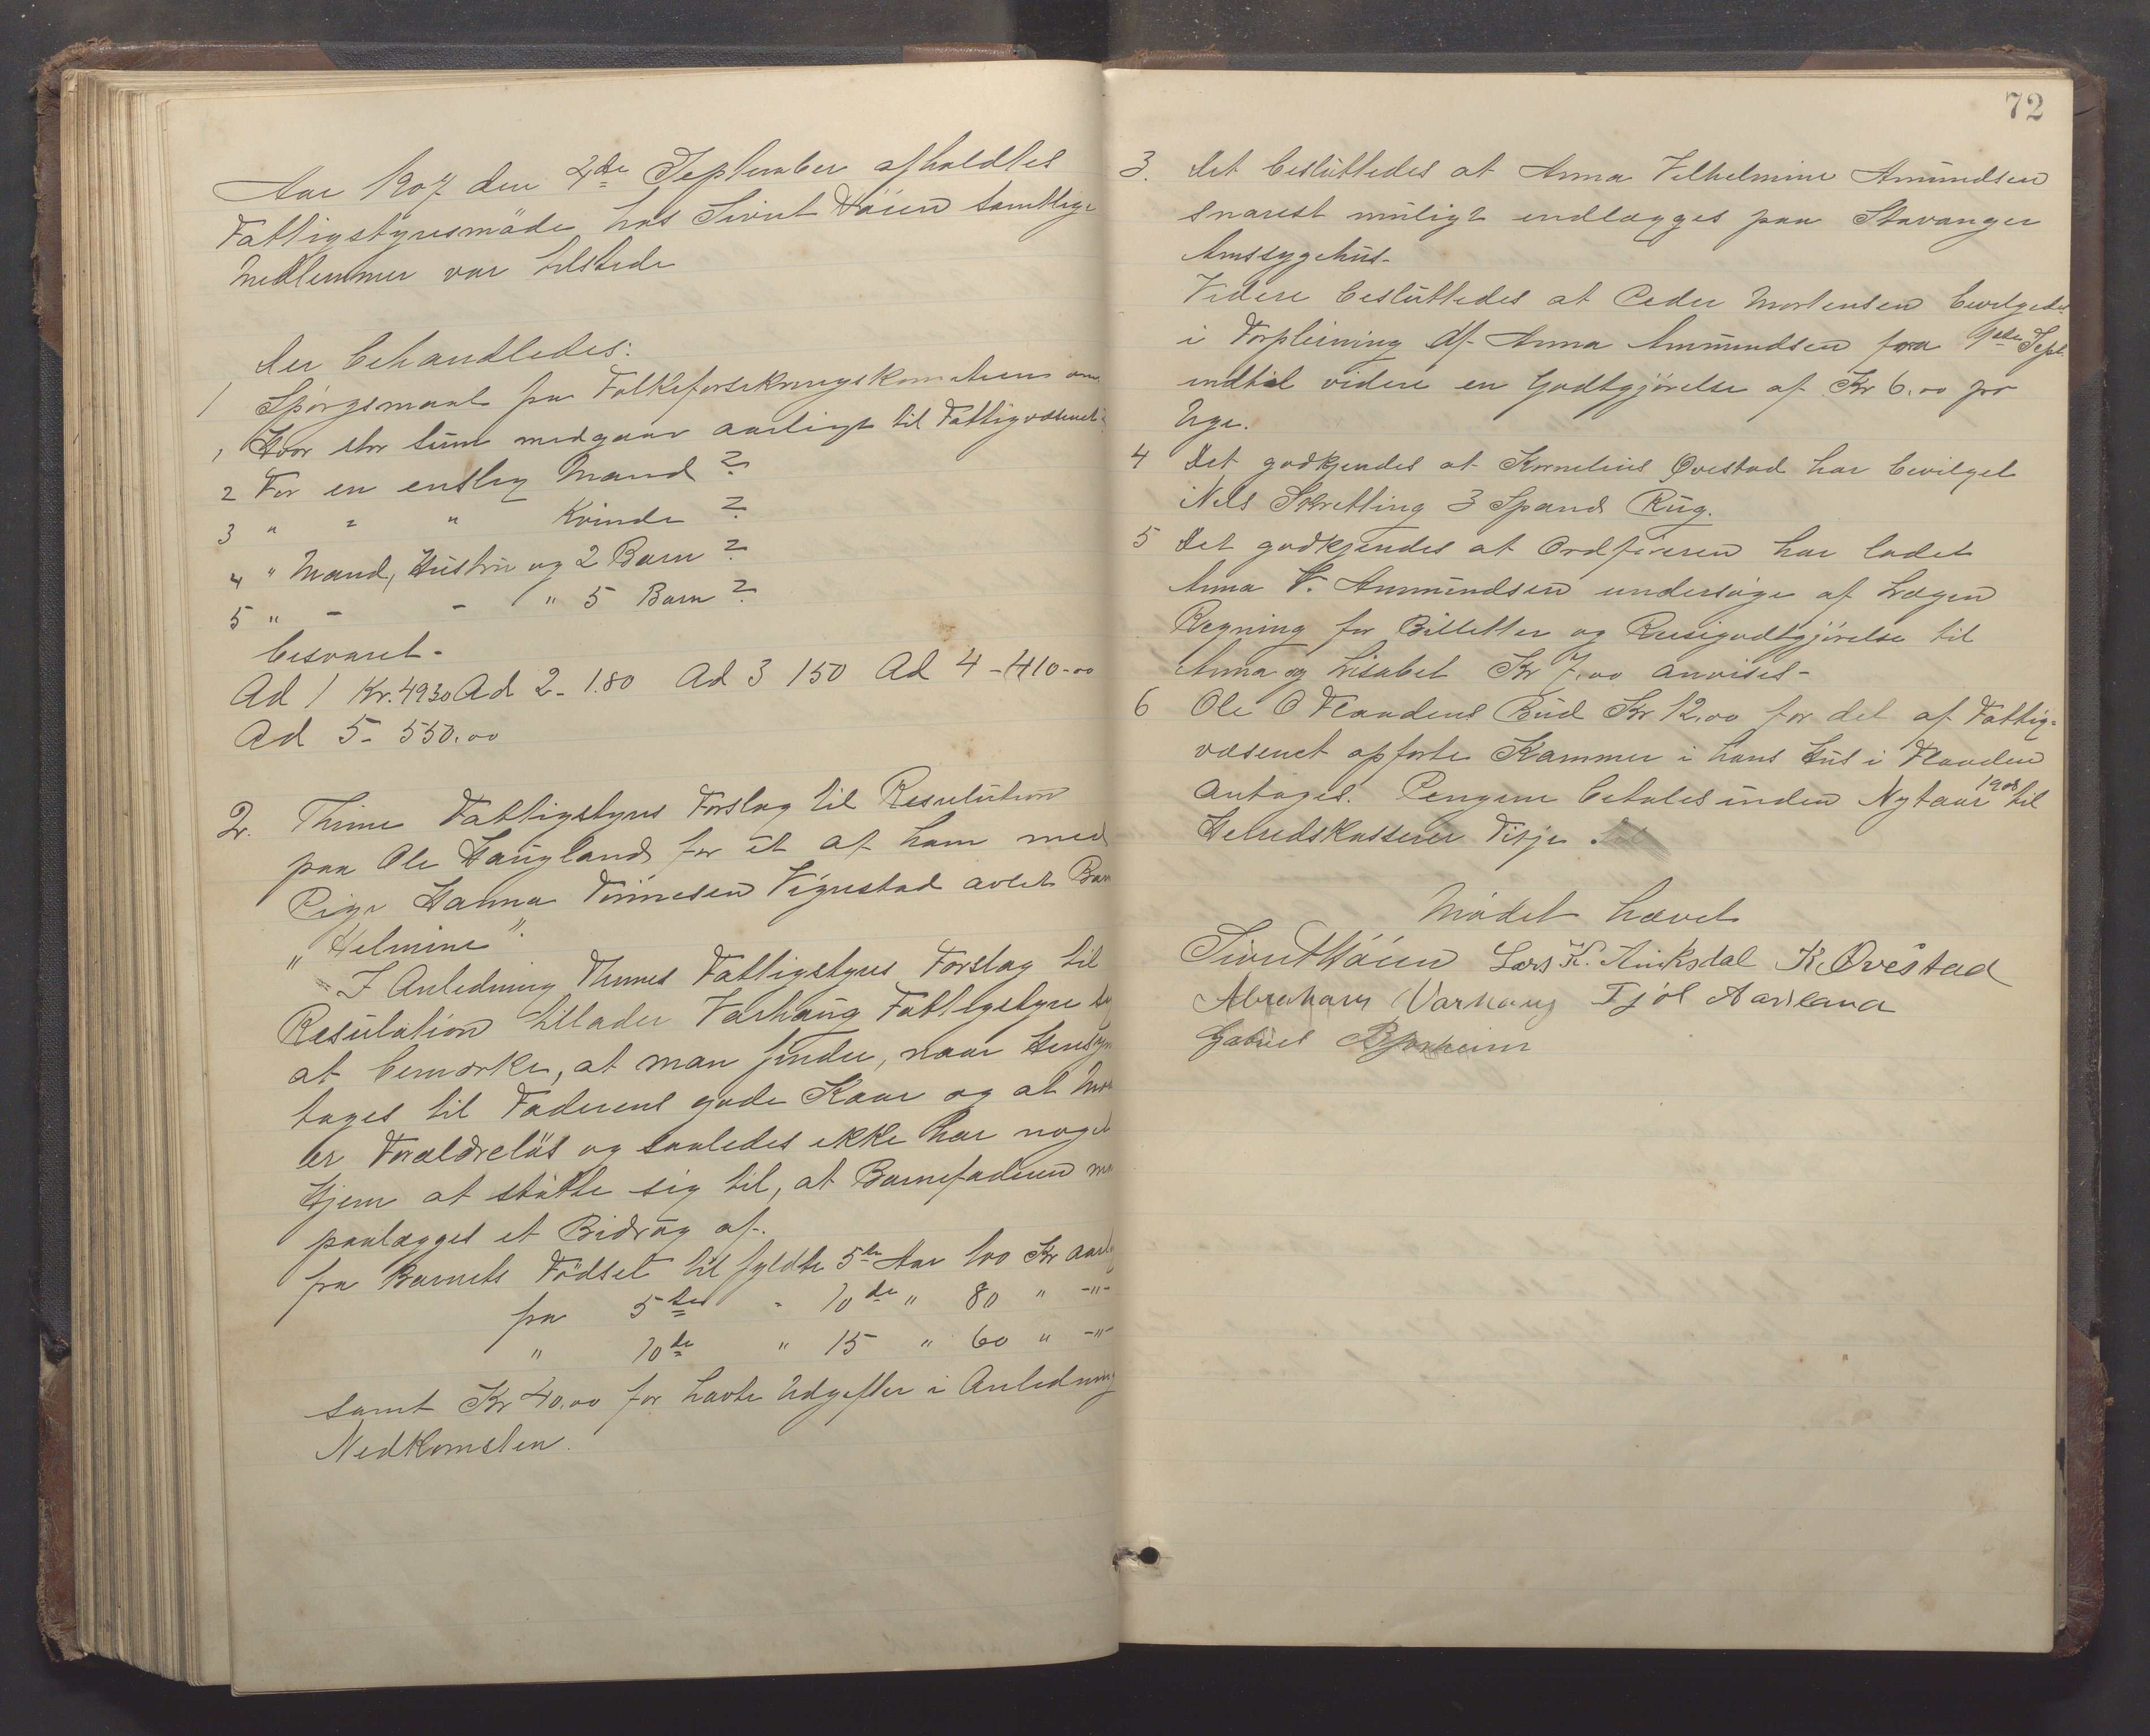 Aar 1907 den 4de September afholdtes
Fattigstyresmöde hos Sivert Höien samtlige
Medlemmer var tilstede
Der behandledes:
1 Spörgsmaal fra Folkeforsikringskomiteen om
1 Hvor stor Sum medgaar aarligt til Fattigvæsenet?
2 For en enslig Mand?
3 " " " Kvinde?
4 " Mand, Hustru og 2 Barn?
5 " - - " 5 Barn?
besvaret-
Ad 1 Kr. 4930 Ad 2- 1.80 Ad 3 150 Ad 4 - 410-00
Ad 5- 550.00
2. Thime Fattigstyres Forslag til Resulution
paa Ole Haugland for et af ham med
Pige Hanna Tönnesen Vigrestad avlet Barn
"Helmine".
I Anledning Thimes Fattigstyres Forslag til
Resulution tillader Varhaug Fattigstyre sig
at bemærke, at man finder, naar Hensyn
tages til Faderens gode Kaar og at Mor
er Forældrelös og saaledes ikke har noget
Hjem at stötte sig til, at Barnefaderen maa
paalægges et Bidrag af.
fra Barnets Födsel til fyldte 5te Aar 100 Kr aarlig
fra 5te - 10de " 80 " -"-
" 10de " 15 " 60 " -"-
samt Kr 40.00 for havte Udgifter i Anledning
Nedkomsten.
72
3. Det besluttedes at Anna Vilhelmine Amundsen
snarest muligt indlægges paa Stavanger
Amssygehus-
Videre besluttedes at Peder Mortensen bevilgedes
i Forpleining af Anna Ammundsen fra 1ste Sept.
indtil videre en Godtgjörelse af Kr 6.00 pr
Uge.
4 Det godkjendes at Kornelius Qvestad har bevilget
Nels Skretting 3 Spand Rug.
5 Det godkjendes at Ordföreren har ladet
Anna V. Ammundsen undersöge af Lægen
Regning for Billetter og Reisegodtgjörelse til
Anna og Lisabet Kr 7.00 anvises-
6 Ole O Flaadens Bud Kr 12.00 for det af Fattig-
væsenet opförte Kammer i hans Hus i Flaaden
antages. Pengene betales inden Nytaar 1908 til
Heredskasserer Tisje
Mödet hævet
Sivert Höien Lars K. Auksdal K. Qvestad
Abraham Varhaug Tjöl Aarsland
Gabriel Bjorheim